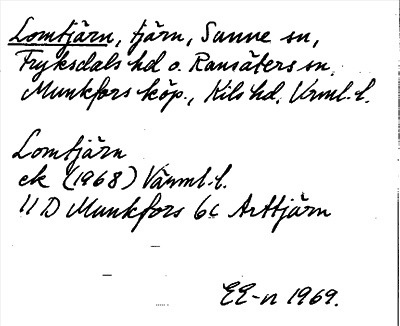 Lomtjärn, tjärn, Sunne sn,
Fryksdals hd o. Ransäters sn,
Munkfors köp., Kils hd, Vrml. l.
Lomtjärn
ek (1968) Värml. l.
11 D Munkfors 6c Arttjärn
EE-n 1969.